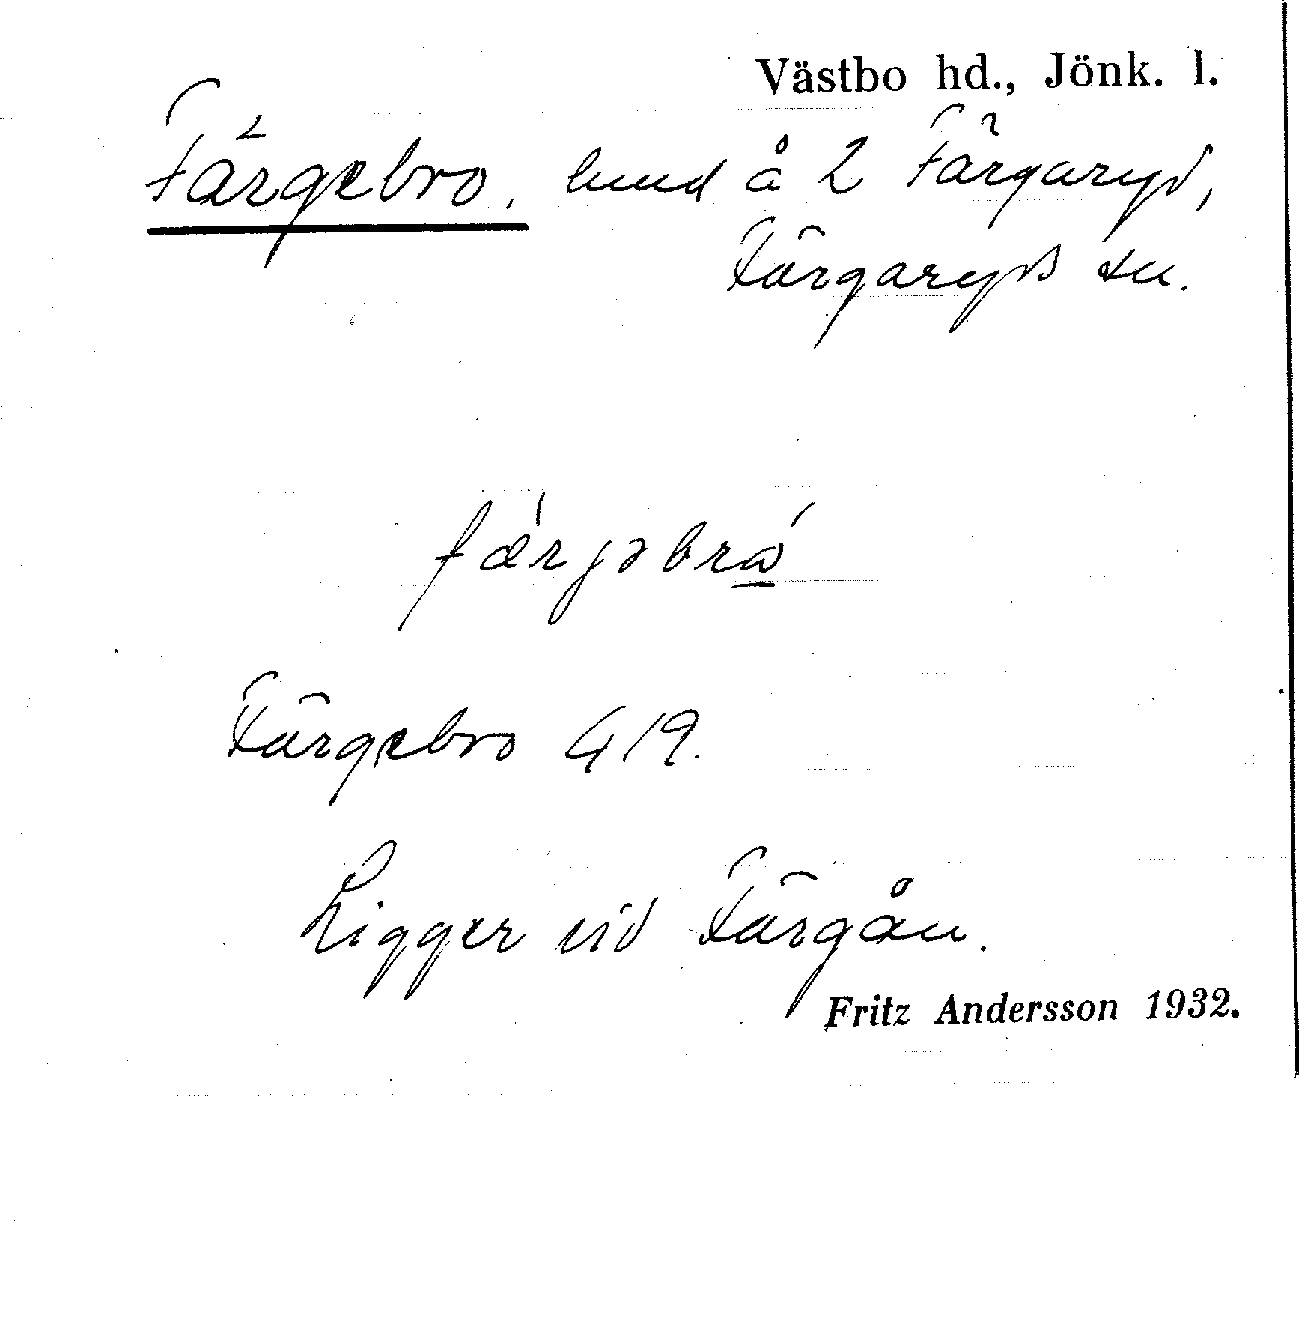 Västbo hd., Jönk. l.
Färgebro, lund å 2 Färgaryd,
Färgaryds sn.
fæ´rjəbrω´
Färgebro G 19.
Ligger vid Färgån.
Fritz Andersson 1932.